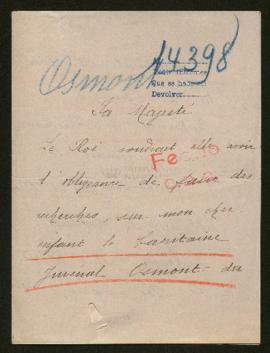 14398
Osmont
que se ha
Devolver
Sa Majesté
Le Roi voudrait elle avoir
l'obligeance de faire des
recherches, sur mon cher
enfant le Capitaine
Juvenal Osmont du